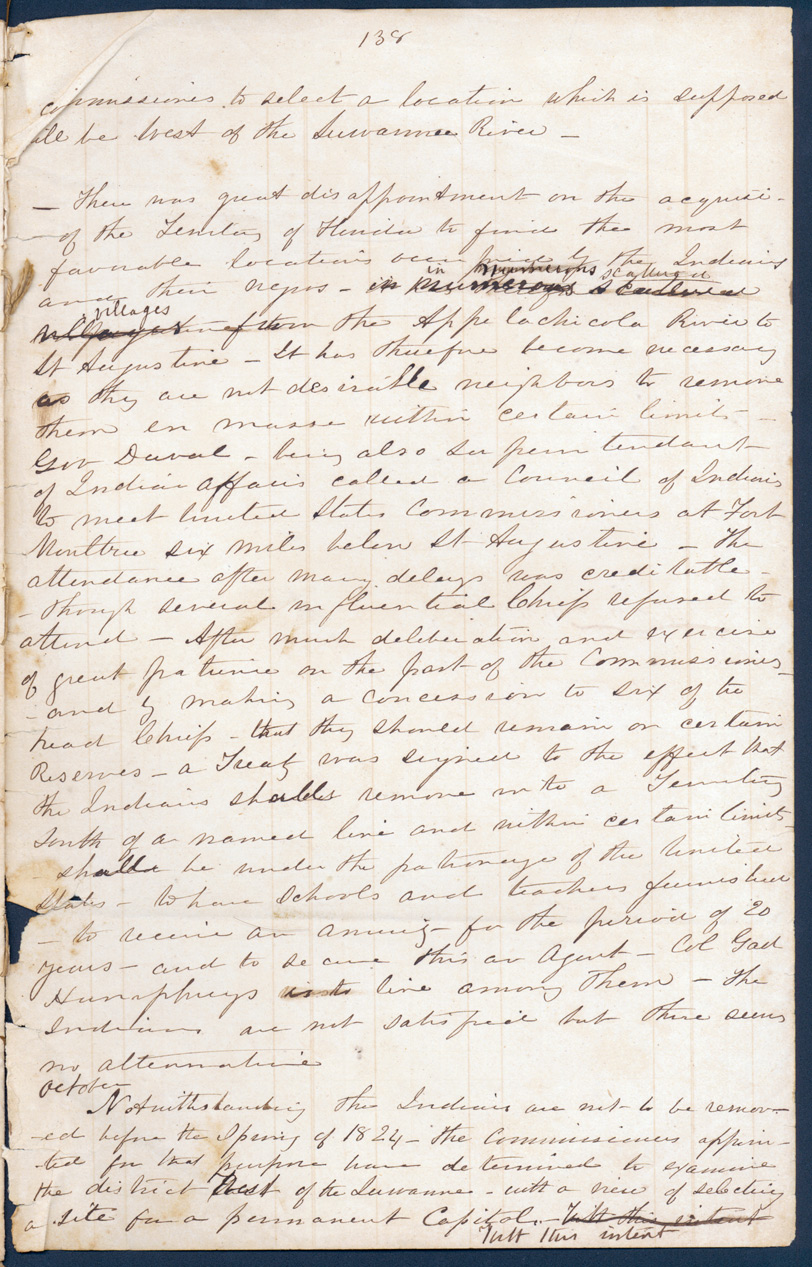 138
commissiones to select a location which is supposed
will be West of the Suwannee River —
— There was great disappointment on the acquisi-
- of the Territory of Florida to find the most
favorable locations by the Indians
and their negos — in numerous scattered
in numerous scattered
villages
villages from the Appelachicola River to
St Augustine — It has therefore become necessary
as they are not desirable neighbors to remove
them en masse within certain limits —
Gov Duval — being also Superintendant
of Indian affairs called a Council of Indians
to meet United States Commissioners at Fort
Moultrie six miles below St Augustine — The
attendance after many delays was creditable —
- though several influential Chiefs refused to
attend — After much deliberation and exercise
of great patience on the part of the Commissiones
- and by making a concession to six of the
head Chiefs — that they should remain on certain
Reserves — a Treaty was signed to the effect that
the Indians shall remove into a Territory
South of a named line and within certain limits
- shall be under the patronage of the United
States — to have schools and teachers furnished
— to receive an annuity — for the period of 20
years — and to secure this an Agent — Col Gad
Humphreys to live among them — The
Indians are not satisfied but there seems
no alternative
October
Notwithstanding the Indians are not to be remov-
-ed before the Spring of 1824 — the Commissiones appoin-
-ted for that purpose have determined to examine
the district West of the Suwanne — with a view of selecting
a site for a permanent Capitol. — With this intent
With this intent